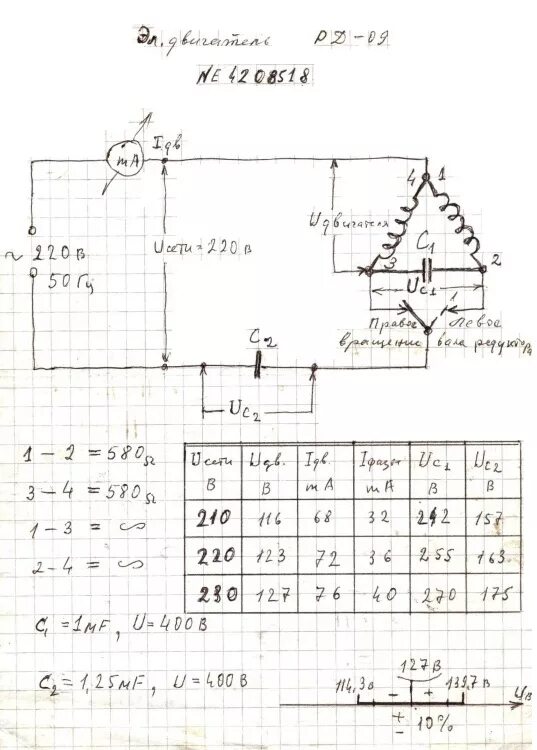 Эл. двигатель РД-09
NE 4208518
mA Iдв
~ 220 в
50 Гц
Uсети = 220 в
Uдвигателя
4 1
3 2
C1
Uc1
1
Правое левое
вращении вала редуктора
C2
Uc2
1 - 2 = 580Ω
3 - 4 = 580Ω
1 - 3 = ∞
2 - 4 = ∞
Uсети В Uдв. В Iдв. mA Iфазы mA Uc1 В Uc2 В
210 116 68 32 242 157
220 123 72 36 255 163
230 127 76 40 270 175
C1 = 1 MF, U = 400 В
C2 = 1,25 MF, U = 400 В
127 В
114,3 в - + 139,7 В
± 10% Uв